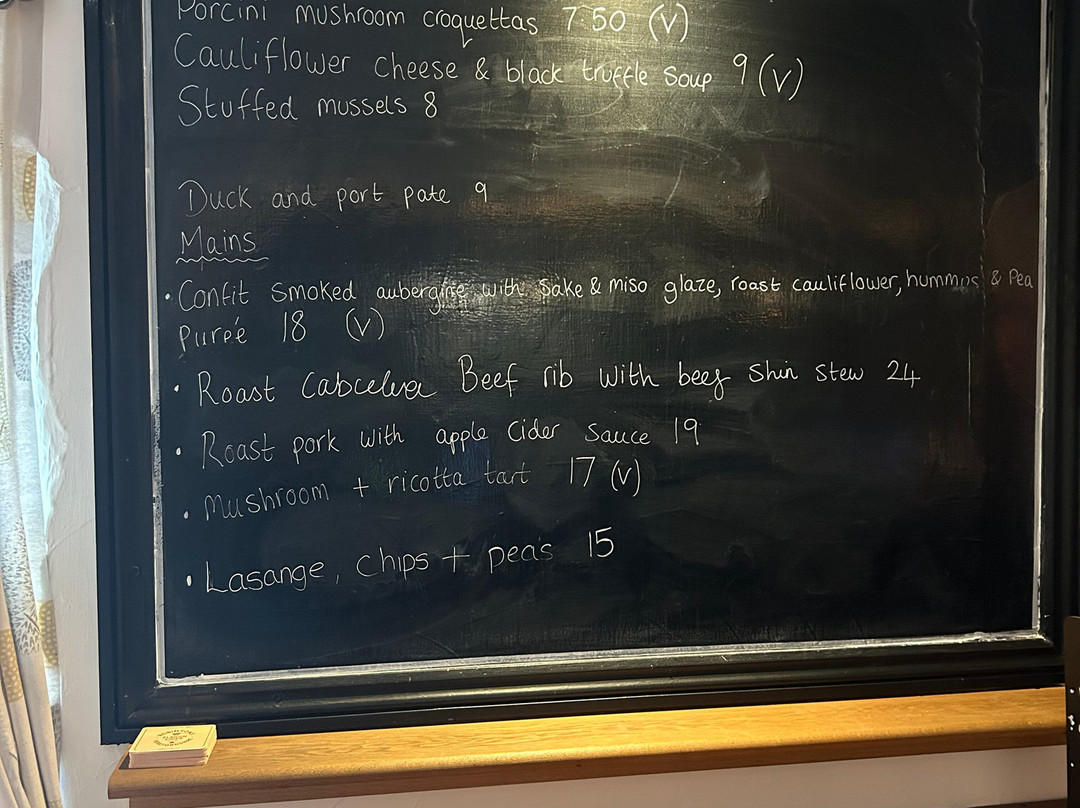 Porcini mushroom croquettas 7.50 (V)
Cauliflower cheese & black truffle soup 9 (V)
Stuffed mussels 8
Duck and port pate 9
Mains
• Confit smoked aubergine with sake & miso glaze, roast cauliflower, hummus & Pea
pureé 18 (V)
• Roast Beef rib with beef shin stew 24
• Roast pork with apple cider sauce 19
• Mushroom + ricotta tart 17 (V)
• Lasange, chips + peas 15